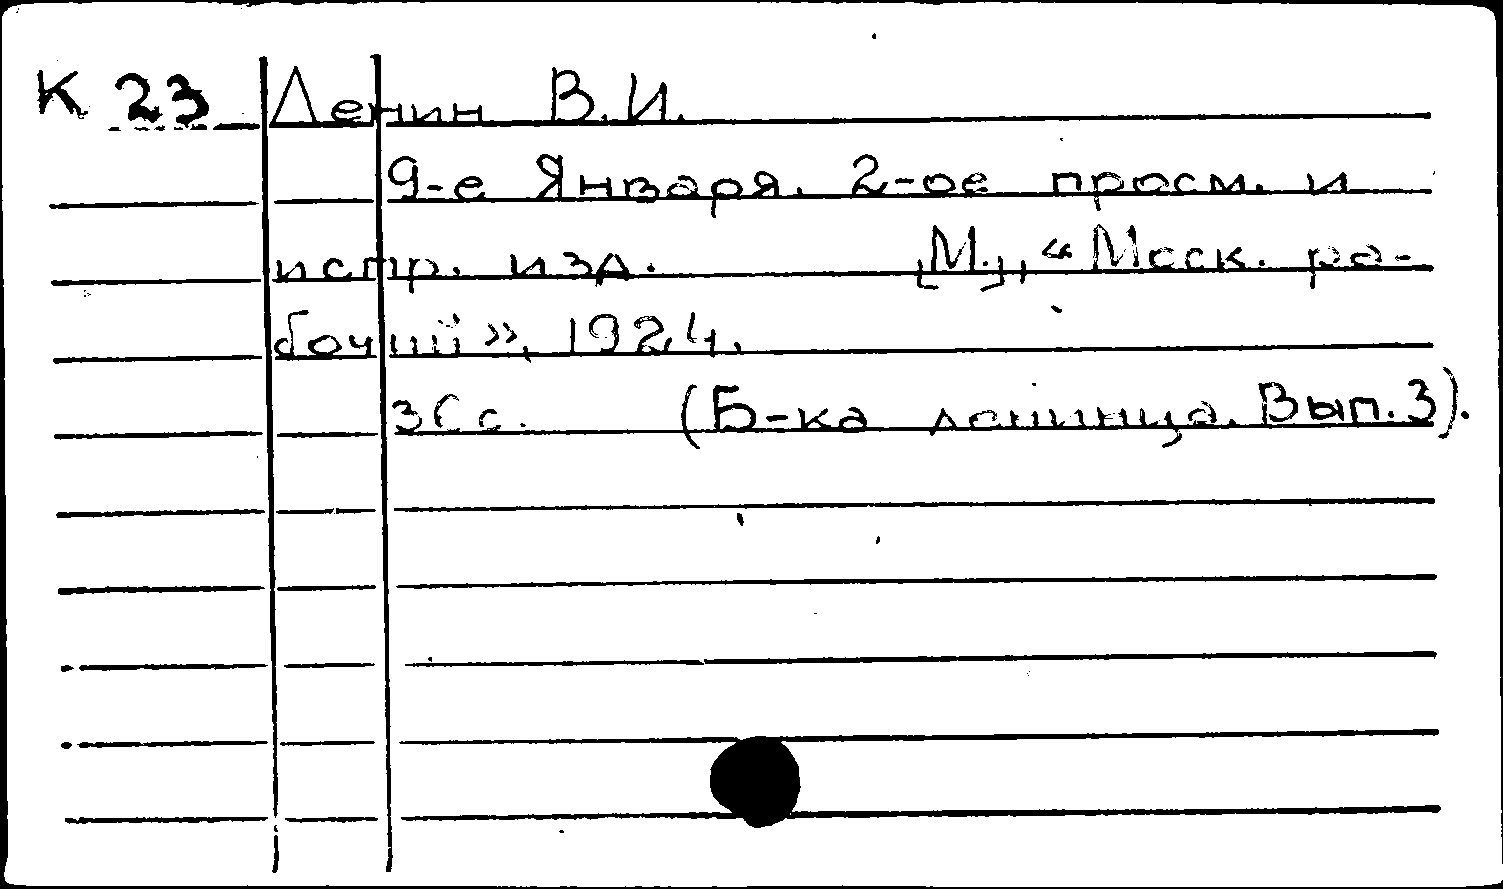 К 23 Ленин В.И.
9-е Января. 2-ое просм. и
испр. изд. [М.], "Моск. ра-
бочий», 1924.
36 с. (Б-ка ленинца. Вып. 3).